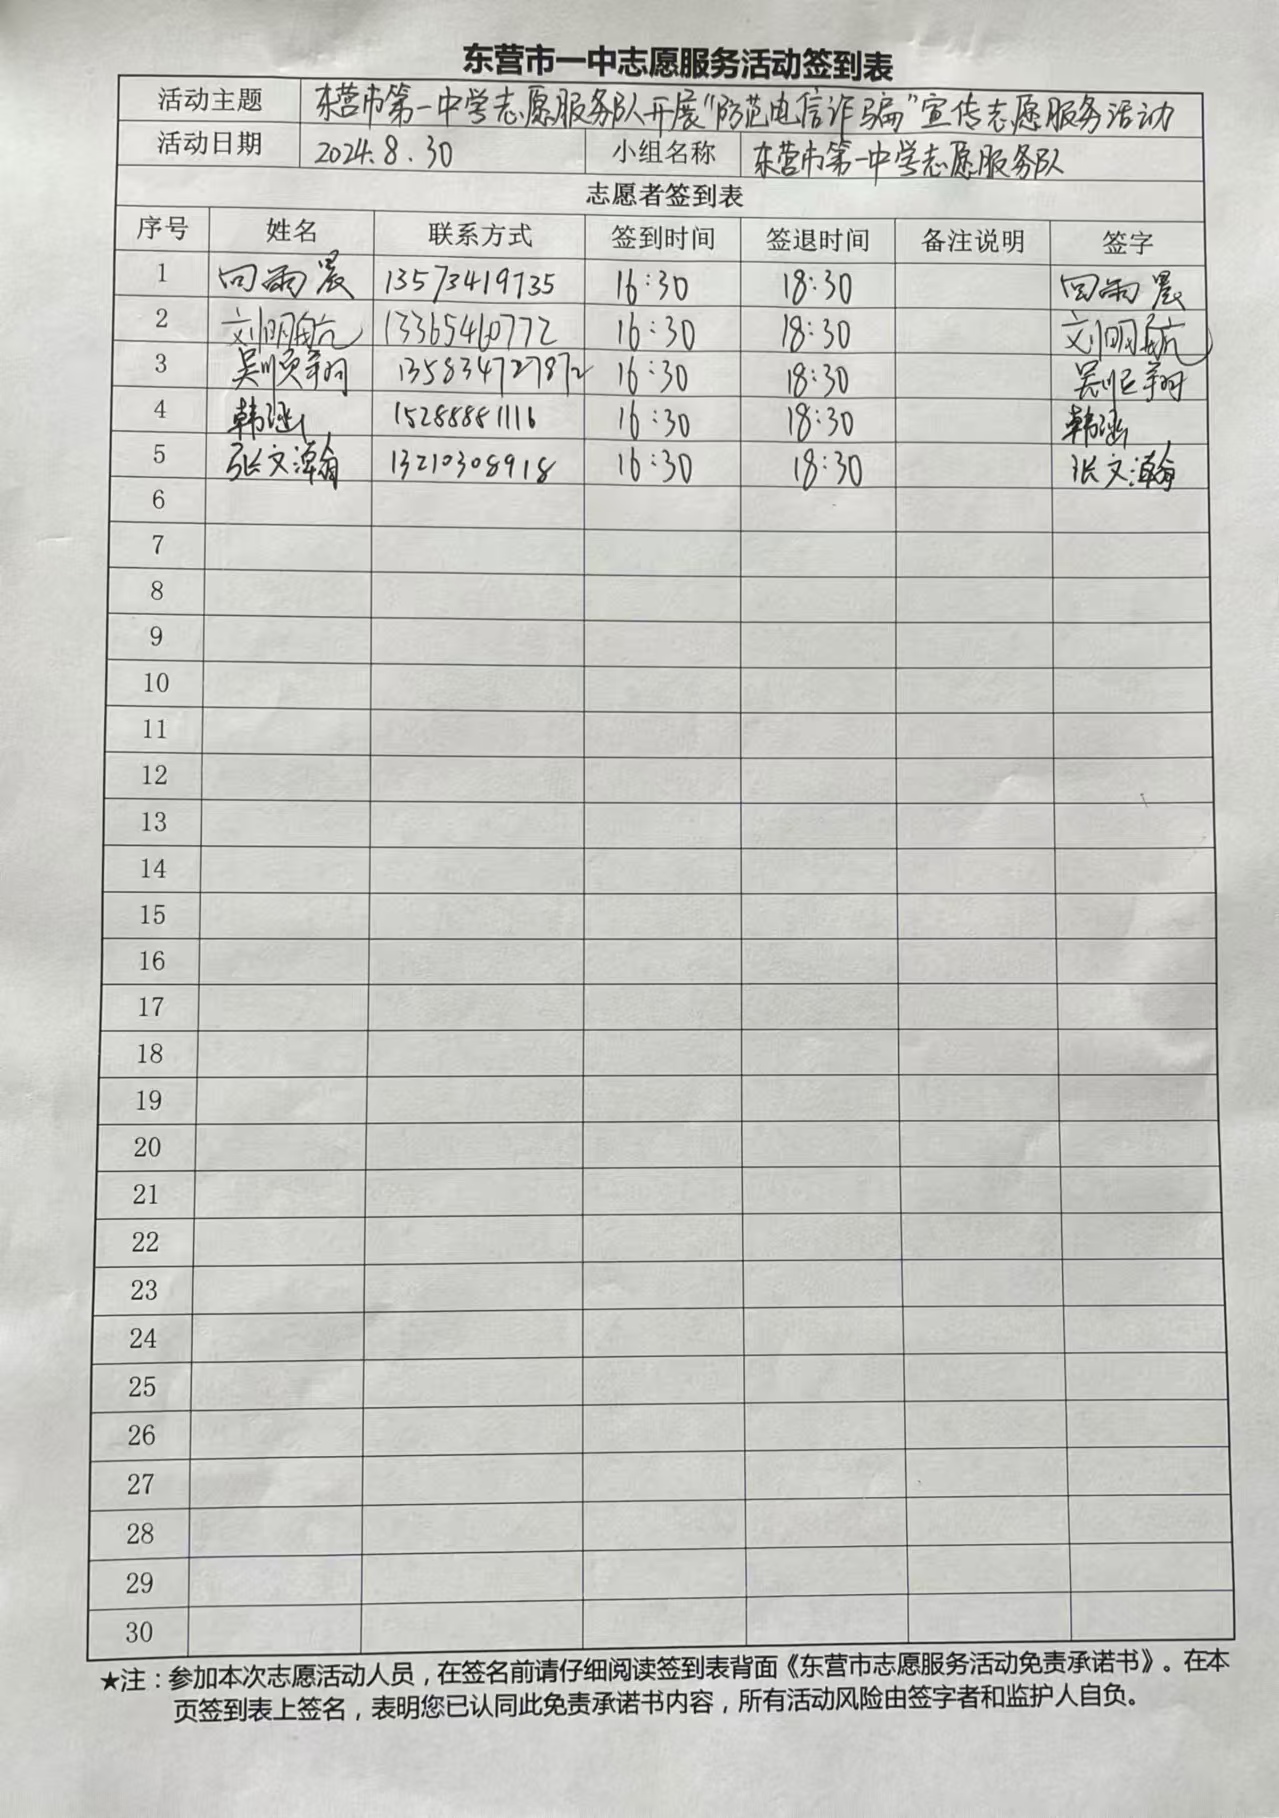 东营市一中志愿服务活动签到表
活动主题 东营市第一中学志愿服务队开展“防范电信诈骗”宣传志愿服务活动
活动日期 2024.8.30 小组名称 东营市第一中学志愿服务队
志愿者签到表
序号 姓名 联系方式 签到时间 签退时间 备注说明 签字
1 回雨晨 13573419735 16:30 18:30 回雨晨
2 刘明航 13365460772 16:30 18:30 刘明航
3 吴顺翔 13583472872 16:30 18:30 吴顺翔
4 韩涵 15288881116 16:30 18:30 韩涵
5 张文瀚 13210308918 16:30 18:30 张文瀚
6
7
8
9
10
11
12
13
14
15
16
17
18
19
20
21
22
23
24
25
26
27
28
29
30
★注：参加本次志愿活动人员，在签名前请仔细阅读签到表背面《东营市志愿服务活动免责承诺书》。在本
页签到表上签名，表明您已认同此免责承诺书内容，所有活动风险由签字者和监护人自负。